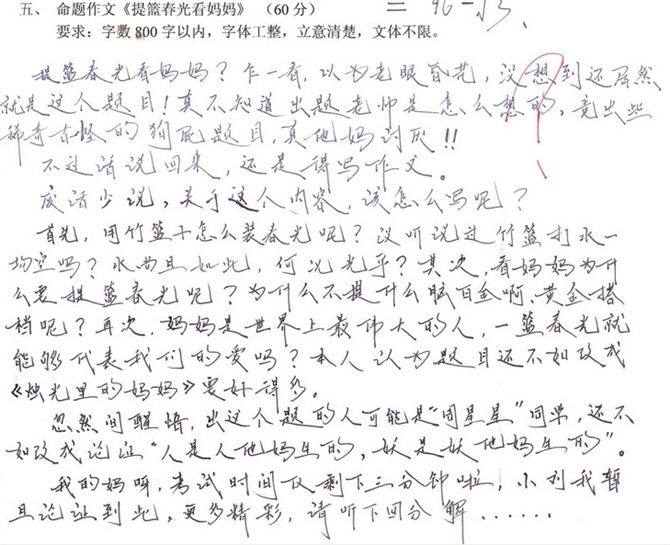 = 96 - √3.
五、 命题作文《提篮春光看妈妈》 (60 分)
要求：字数 800 字以内，字体工整，立意清楚，文体不限。
提篮春光看妈妈？乍一看，以为老眼昏花，没想到还居然
就是这个题目！真不知道出题老师是怎么想的，竟出些
稀奇古怪的狗屁题目，真他妈讨厌!!
不过话说回来，还是得写作文。
废话少说，关于这个内容，该怎么写呢？
首先，用竹篮子怎么装春光呢？没听说过竹篮打水一
场空吗？水尚且如此，何况光乎？其次，看妈妈为什
么要提篮春光呢？为什么不提什么脑白金啊，黄金搭
档呢？再次，妈妈是世界上最伟大的人，一篮春光就
能够代表我们的爱吗？本人认为题目还不如改成
《烛光里的妈妈》要好得多。
忽然间醒悟，出这个题的人可能是“周星星”同学，还不
如改成论证“人是人他妈生的，妖是妖他妈生的”。
我的妈呀，考试时间仅剩下三分钟啦，小刘我暂
且论证到此，更多精彩，请听下回分解......